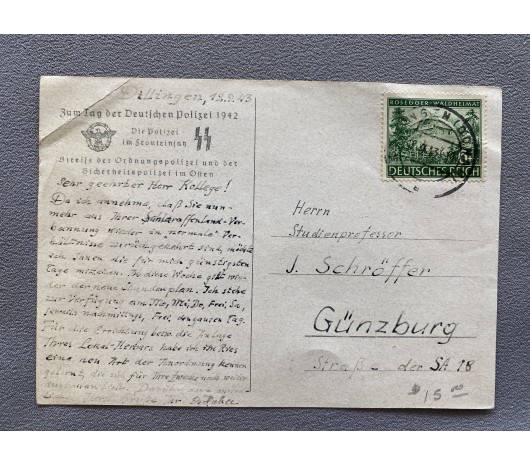 Dillingen, 18.9.43
Zum Tag der Deutschen Polizei 1942
Die Polizei
im Fronteinsatz
Streife der Ordnungspolizei und der
Sicherheitspolizei im Osten
Sehr geehrter Herr Kollege!
Da ich annehme, daß Sie nun-
mehr aus Ihrer Schlaraffenland-Ver-
bannung wieder in "normale" Ver-
hältnisse zurückgekehrt sind, möchte
ich Ihnen die für mich günstigsten
Tage mitteilen. In diese Woche gilt wie-
der der neue Stundenplan. Ich stehe
zur Verfügung am Mo, Mi, Do, Frei, Sa,
jeweils nachmittags, Frei, den ganzen Tag.
Für die Errichtung bezw. die Anlage
Ihres Lokal-Herbars habe ich im Ries
eine neue Art der Anordnung kennen
gelernt, die ich für Ihre Zwecke noch weiter
ROSEGGER-WALDHEIMAT
6
DEUTSCHES REICH
Herrn
Studienprofessor
J. Schröffer
Günzburg
Straß- der SA 18
$ 15 00